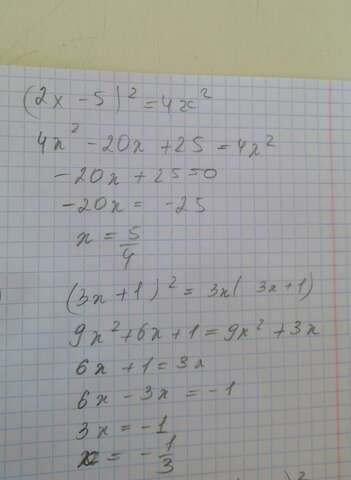 (2x - 5)² = 4x²
4x² - 20x + 25 = 4x²
-20x + 25 = 0
-20x = -25
x = 5/4
(3x + 1)² = 3x(3x+1)
9x² + 6x + 1 = 9x² + 3x
6x + 1 = 3x
6x - 3x = -1
3x = -1
x = -1/3